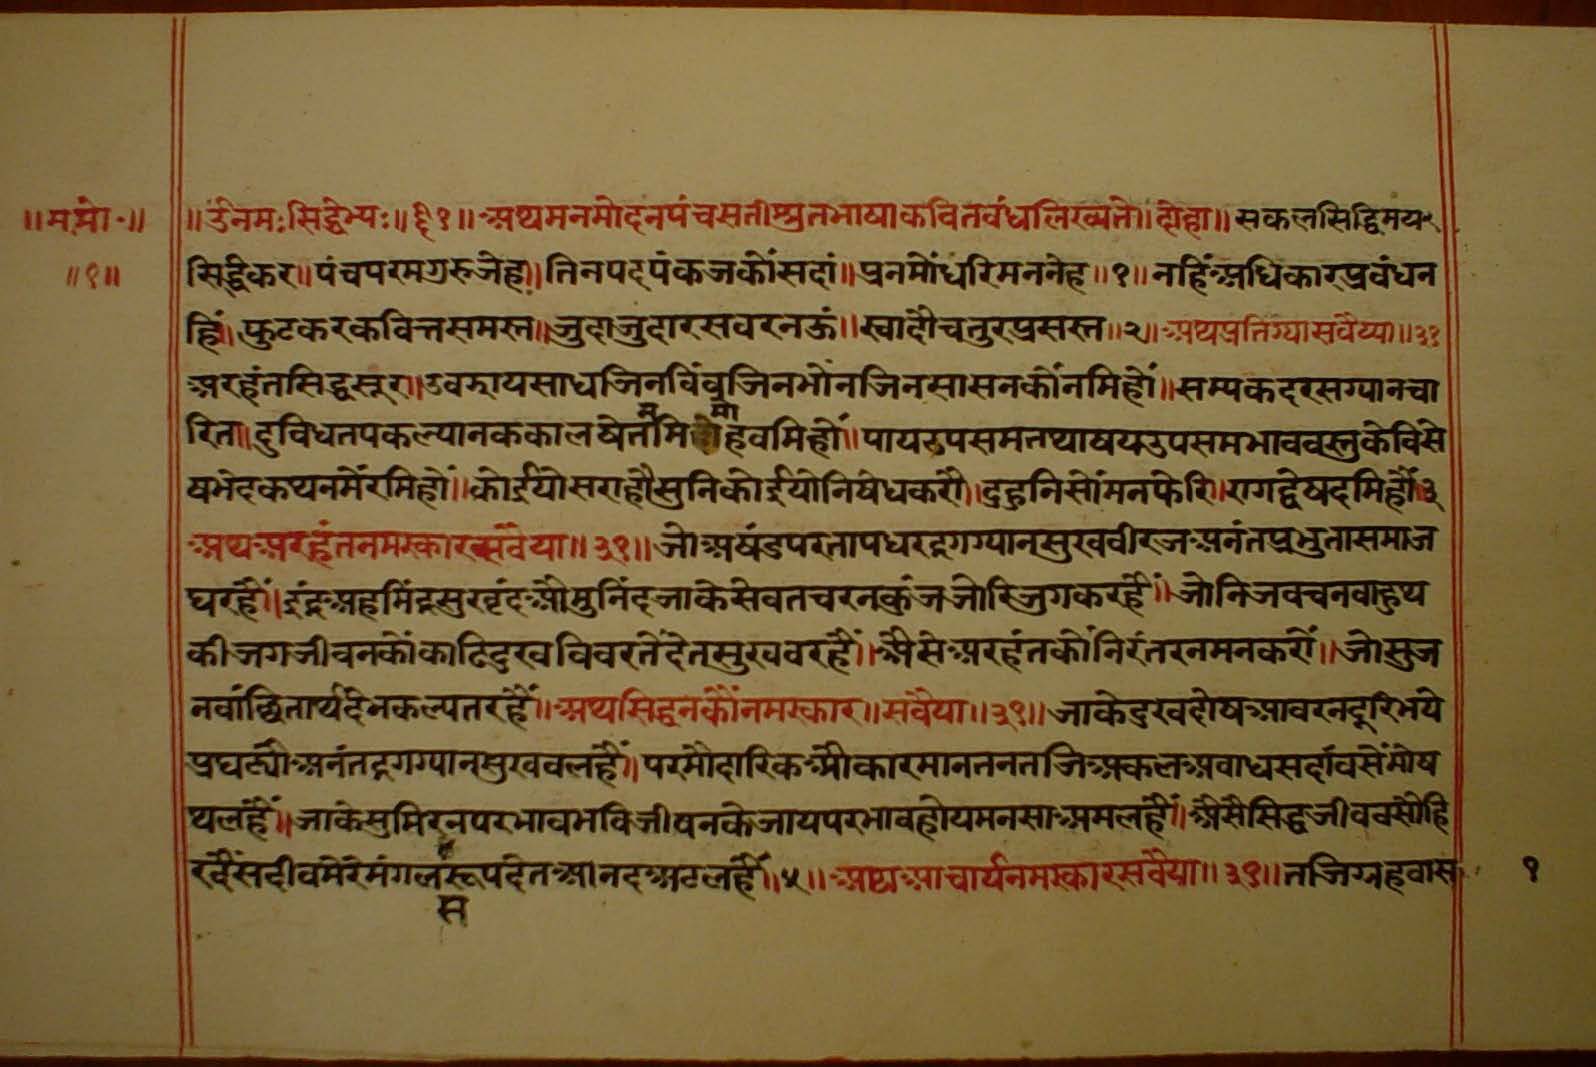 ॥म.मो.॥
॥१॥
॥उंनमःसिद्धेभ्यः॥ ॥अथमनमोदनपंचसतीम्प्रतभाषाकवितवंधलिख्यते॥दोहा॥सकलसिद्धिमय
सिद्धिकर॥पंचपरमगुरुजेह॥तिनपदपंकजकौंसदां॥प्रनमोंधरिमननेह॥१॥नहिंअधिकारप्रवंधन
हिं॥फुटकरकवित्तसमस्त॥जुदाजुदारसवरनऊं॥स्वादौचतुरप्रसस्त॥२॥अथप्रतिग्यासवैय्या॥३१
अरहंतसिद्धसूर॥उवझायसाधजिनविंवजिनभोंनजिनसासनकौंनमिहौं॥सम्यकदरसग्यानचा
रित॥दुविधतपकल्यानककालषेतनमिहवमिहौं॥पायउपसमतथाषयउपसमभाववस्तुकेविसे
षभेदकथनमैंरमिहौं॥कोईयोसराहौसुनिकोईयोनिषेधकरौ॥दुहुनिसोंमनफेरि॥रागद्वेषदमिहौं॥३
अथअरहंतनमस्कारसवैया॥३१॥जोअषंडपरतापधरदृगग्यानसुखवीरजअनंतप्रभुतासमाज
घरहैं॥इंद्रअहमिंद्रसुरवृंदऔमुनिंदजाकेसेवतचरनकंजजोरिजुगकरहैं॥जोनिजवचनवाहुथ
कीजगजीवनकौंकाढिदुखविवरतेंदेतसुखवरहैं॥ऐसेअरहंतकौंनिरंतरनमनकरौं॥जोसुज
नवांछितार्थदेनकल्पतरहैं॥अथसिद्धनकौंनमस्कार॥सवैया॥३१॥जाकेदुखदोषआवरनदूरिभये
प्रघट्यौअनंतदृगग्यानसुखवलहैं॥परमौदारिकऔकारमानतनतजिअकलअवाधसदांवसेंमोष
थलहैं॥जाकेसुमिरनपरभावभविजीवनकेजायपरभावहोयमनसाअमलहैं॥ऐसैसिद्धजीववसोहि
रदैंसदीवमेरेमंगलसरूपदेतआनदअटलहैं॥५॥अथआचार्यनमस्कारसवैया॥३१॥तजिग्रहवास
१